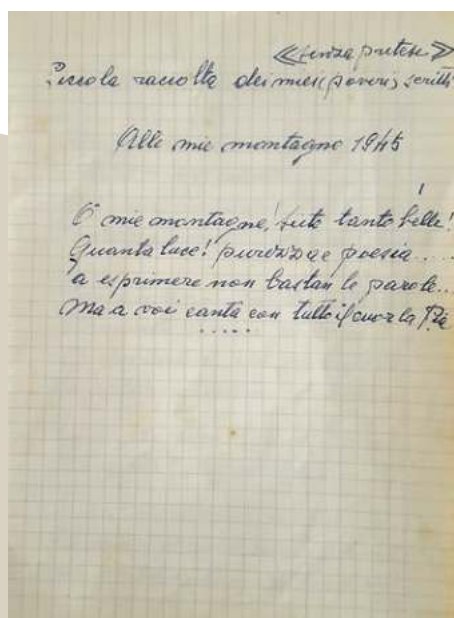 «senza pretese»
Piccola raccolta dei miei (poveri) scritti
Alle mie montagne 1945
O mie montagne! siete tanto belle!
Quanta luce! purezza e poesia....
a esprimere non bastan le parole...
Ma a voi canta con tutto il cuor la Pia
.....